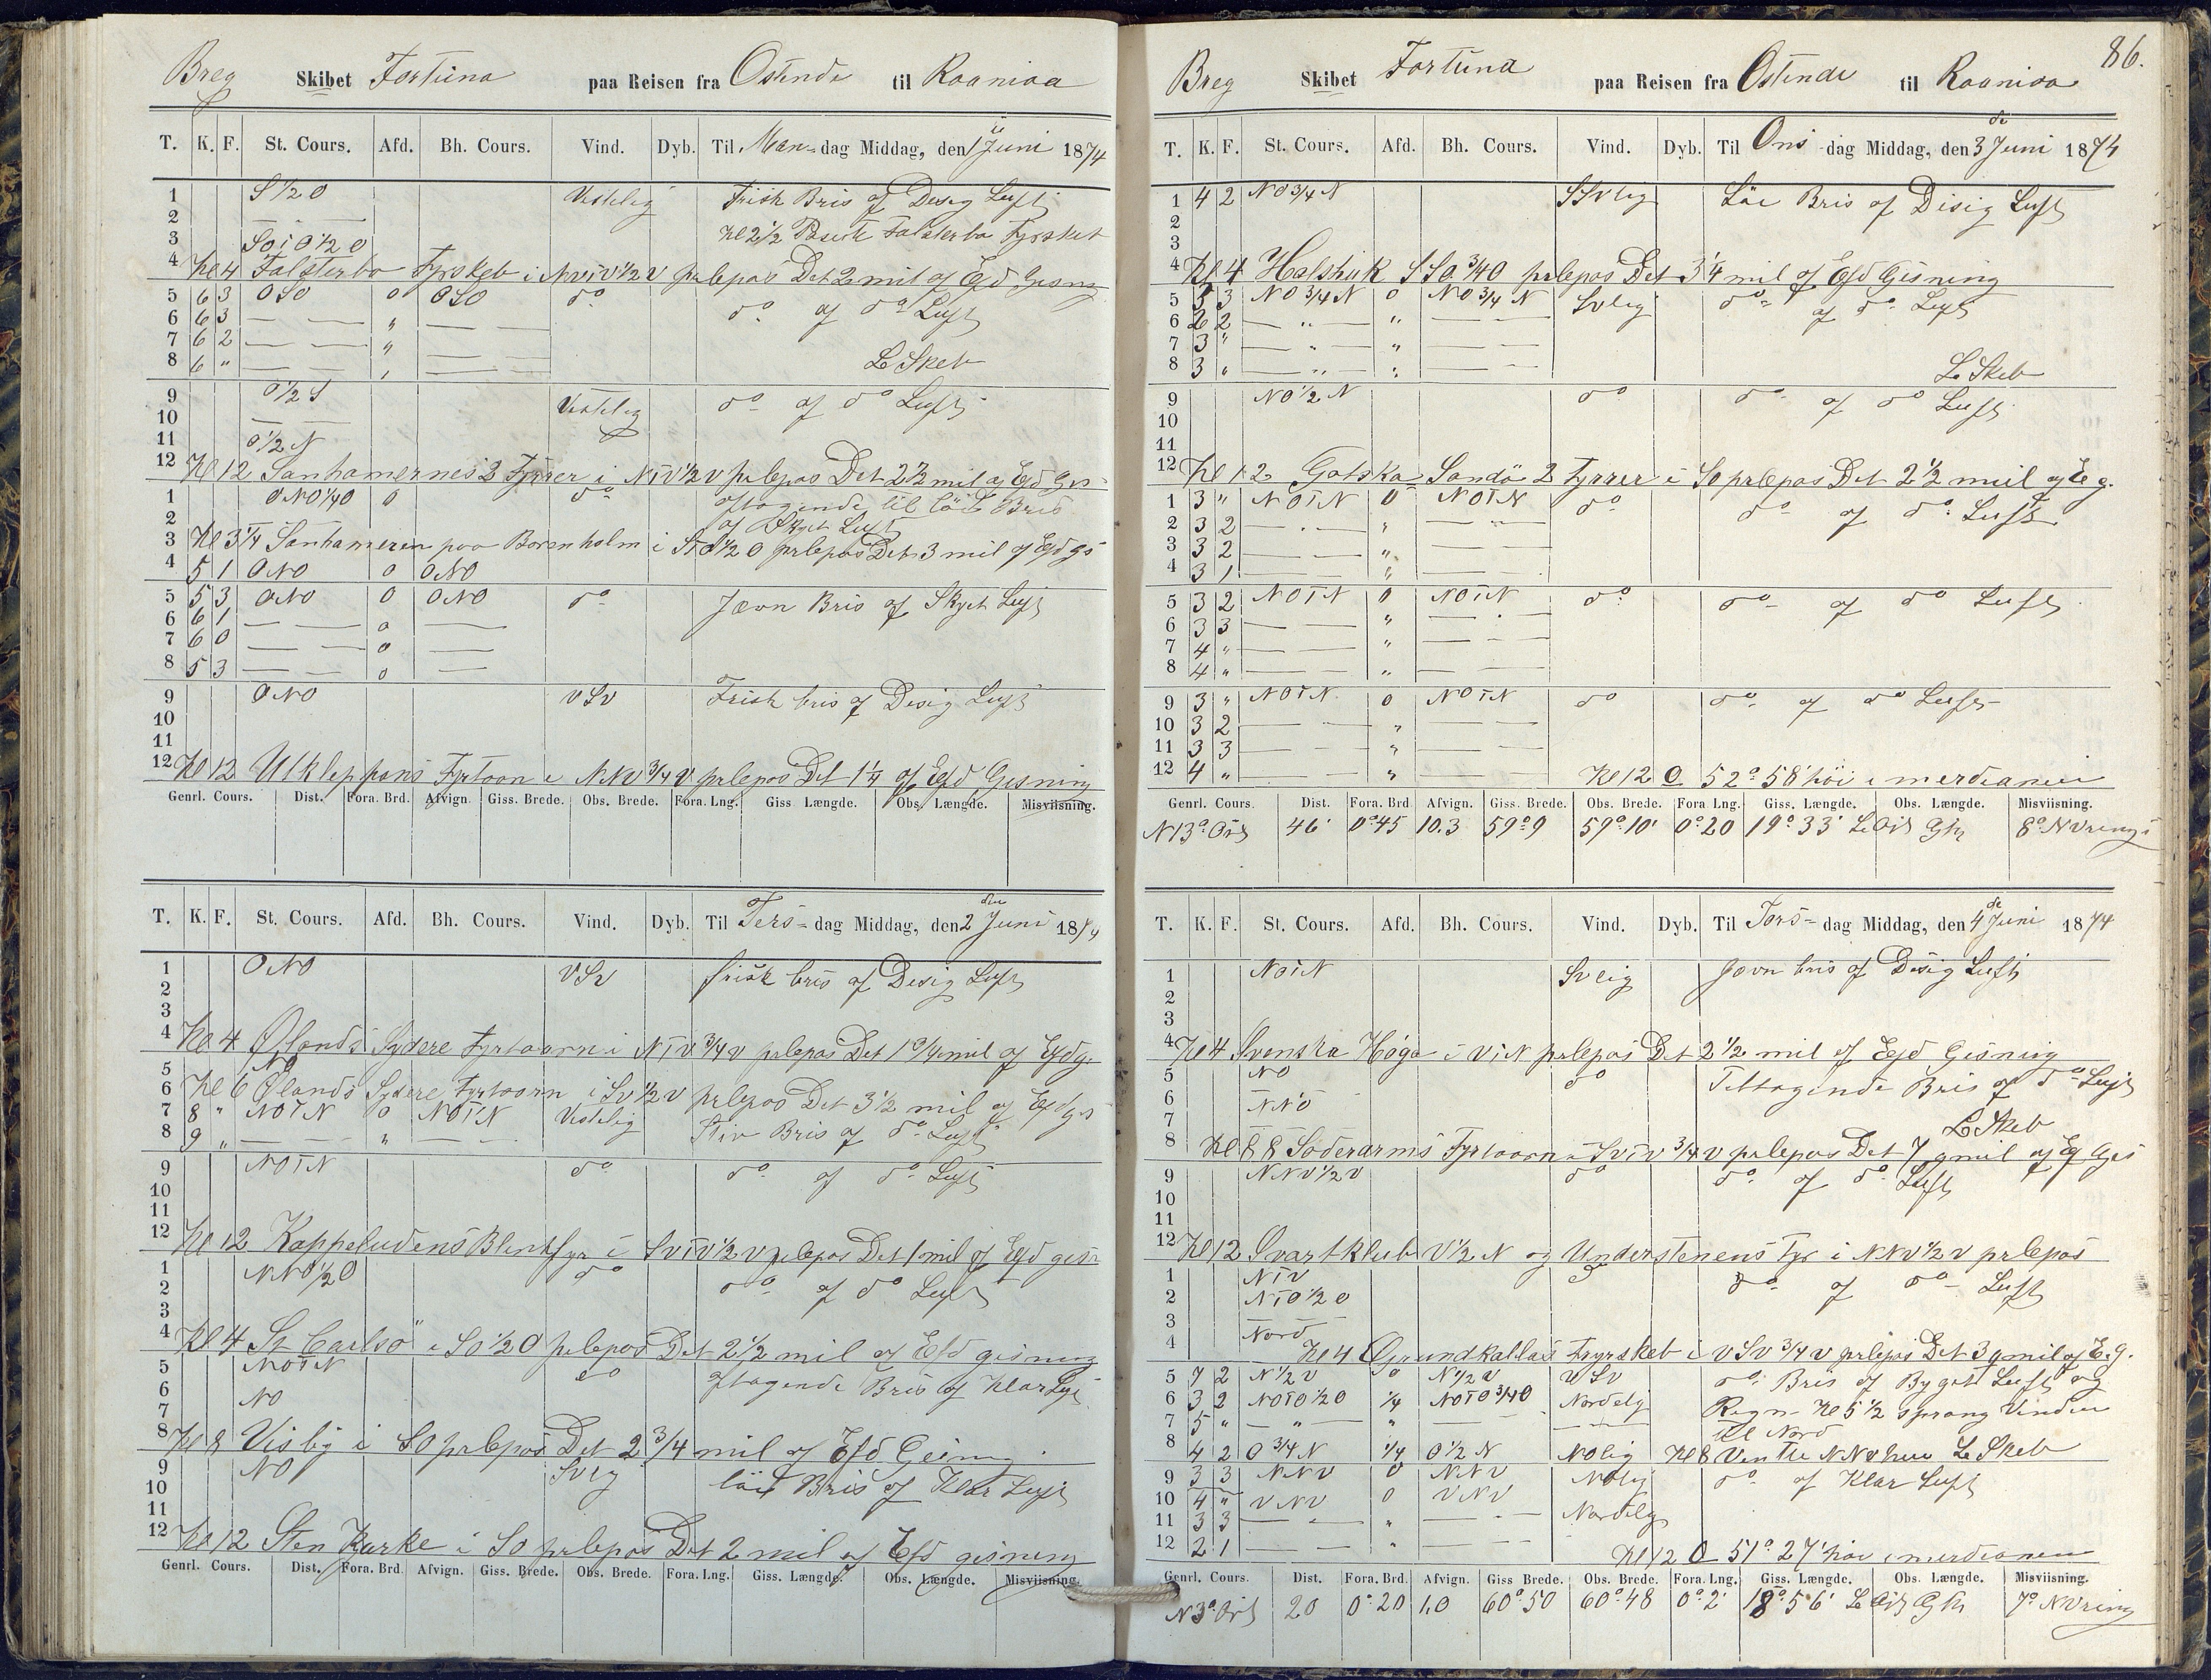 Breg Skibet Fortuna paa Reisen fra Ostende til Raanioa
T. K. F. St. Cours. Afd. Bh. Cours. Vind. Dyb. Til Man-dag Middag, den 1 Juni 1874
1 S½O Vestelig Frisk Bris og Disig Luft
2 Kl 2½ Falsterbo Fyrskeb
3 SOiO½O
4 Kl 4 Falsterbo Fyrskeb i NViV½V prlepas Det 2 mil og Efd Gisng
5 6 3 OSO 0 OSO do do og do Luft
6 6 3 — — " — —
7 6 2 — — " — —
8 6 " — — " — — L Skeb
9 O½S Vestelig do og do Luft
10 —
11 O½N
12 Kl 12 Sanhamernes 2 Fyrrer i NTV½V prlepas Det 2½ mil og Efd Gis
1 ONO¼O 0 do aftagende til löi Bris
2 og Skyet Luft
3 Kl 3¼ Sanhameren paa Borenholm i STO½O prlepas Det 3 mil og Efd gs
4 5 1 ONO 0 ONO
5 5 3 ONO 0 ONO do Jævn Bris og Skyet Luft
6 6 1 — — 0 — —
7 6 0 — — 0 — —
8 5 3 — — 0 — —
9 ONO VSV Frisk bris og Disig Luft
10
11
12 Kl 12 Utkleppans Fyrtaarn i NNV¾V prlepas Det 1¼ og Efd Gisning
Genrl. Cours. Dist. Fora. Brd. Afvign. Giss. Brede. Obs. Brede. Fora. Lng. Giss. Længde. Obs. Længde. Misviisning.
T. K. F. St. Cours. Afd. Bh. Cours. Vind. Dyb. Til Ters-dag Middag, den 2 den Juni 1874
1 ONO VSV frisk bris og Disig Luft
2
3
4 Kl 4 Ølands Sydere Fyrtaarn i NTV¾V prlepas Det 1 mil og Efdg.
5 NO
6 Kl 6 Ølands Sydere Fyrtaarn i SV½V prlepas Det 3½ mil og Efd gs
7 8 " NOTN 0 NOTN Vestelig Stiv Bris og do Luft
8 9 " — — " — —
9 NOTN do do og do Luft
10
11
12 Kl 12 Kappeludens Blinkfyr i SViV½V prlepas Det 1 mil og Efd gisn
1 NNO½O do do og do Luft
2
3
4 Kl 4 St Carlsö i SO½O prlepas Det 2½ mil og Efd gisning
5 NOTN do aftagende Bris og Klar Luft
6 NO
7
8 Kl 8 Visby i SO prlepas Det 2¾ mil og Efd Gising
9 NO SVlg löi Bris og Klar Luft
10
11
12 Kl 12 Sten Kurke i SO prlepas Det 2 mil og Efd gisning
Genrl. Cours. Dist. Fora. Brd. Afvign. Giss. Brede. Obs. Brede. Fora. Lng. Giss. Længde. Obs. Længde. Misviisning.
86.
Breg Skibet Fortuna paa Reisen fra Ostende til Raanioa
T. K. F. St. Cours. Afd. Bh. Cours. Vind. Dyb. Til Ons-dag Middag, den 3 de Juni 1874
1 4 2 NO¾N SSVlig Löi Bris og Disig Luft
2
3
4 Kl 4 Halshuk SSO¾O prlepas Det 3¼ mil og Efd Gisning
5 3 3 NO¾N 0 NO¾N SVlig do og do Luft
6 2 2 — " — " — —
7 3 " — " — " — —
8 3 " — " — " — — L Skeb
9 NO½N do do og do Luft
10
11
12 Kl 12 Gotska Sandö 2 Fyrrer i SO prlepas Det 2½ mil og E g.
1 3 " NOTN 0 NOTN do do og do Luft
2 3 2 — — " — —
3 3 2 — — " — —
4 3 1 — — " — —
5 3 2 NOTN 0 NOTN do do og do Luft
6 3 3 — — " — —
7 4 " — — " — —
8 4 " — — " — —
9 3 " NOTN 0 NOTN do do og do Luft
10 3 2 — — " — —
11 3 3 — — " — —
12 4 " — — " — — Kl 12 O 52° 58' höi i merdianen
Genrl. Cours. Dist. Fora. Brd Afvign. Giss. Brede. Obs. Brede. Fora Lng. Giss. Længde. Obs. Længde. Misviisning.
N13° Ost 46' 0°45 10.3 59°9 59°10' 0°20 19°33' L Ost 8° NVring
T. K. F. St. Cours. Afd. Bh. Cours. Vind. Dyb. Til Tors-dag Middag, den 4 de Juni 1874
1 NOTN SVlig Jævn bris og Disig Luft
2
3
4 Kl 4 Svenska Høga i ViN prlepas Det 2½ mil og Efd Gisning
5 NO do Tiltagende Bris og do Luft
6 NNO
7 L Skeb
8 Kl 8 Söderarms Fyrtaarn i SViV¾V prlepas Det 7 qmil og Ef Gis
9 NNV½V do do og do Luft
10
11
12 Kl 12 Svartklub V½N og Understenens Fyr i NNV½V prlepas
1 NTV do do og do Luft
2 NTO½O
3 Nord
4 Kl 4 Grundkallas Fyrskeb i VSV¾V prlepas Det 3 qmil og E.g.
5 7 2 N½V 0 N½V VSV do Bris og Bygot Luft og
6 3 2 NOTO½O ¼ NOTO¾O Nordelig Regn Kl 5½ sprang Vinden
7 5 " — " — " — — til Nord
8 4 2 O¾N ¼ O½N NOlig Kl 8 L Skeb
9 3 3 NNV 0 NNV NOlig do og Klar Luft
10 4 " VNV 0 VNV Nordelig
11 3 3 — — " — —
12 2 1 — — " — — Kl 12 O 51° 27' höi i merdianen
Genrl. Cours. Dist. Fora. Brd. Afvign. Giss Brede. Obs. Brede. Fora. Lng. Giss. Længde. Obs. Længde. Misviisning.
N3° Ost 20 0°20 1,0 60°50 60°48 0°2' 18°56' L Ost 7° NVring